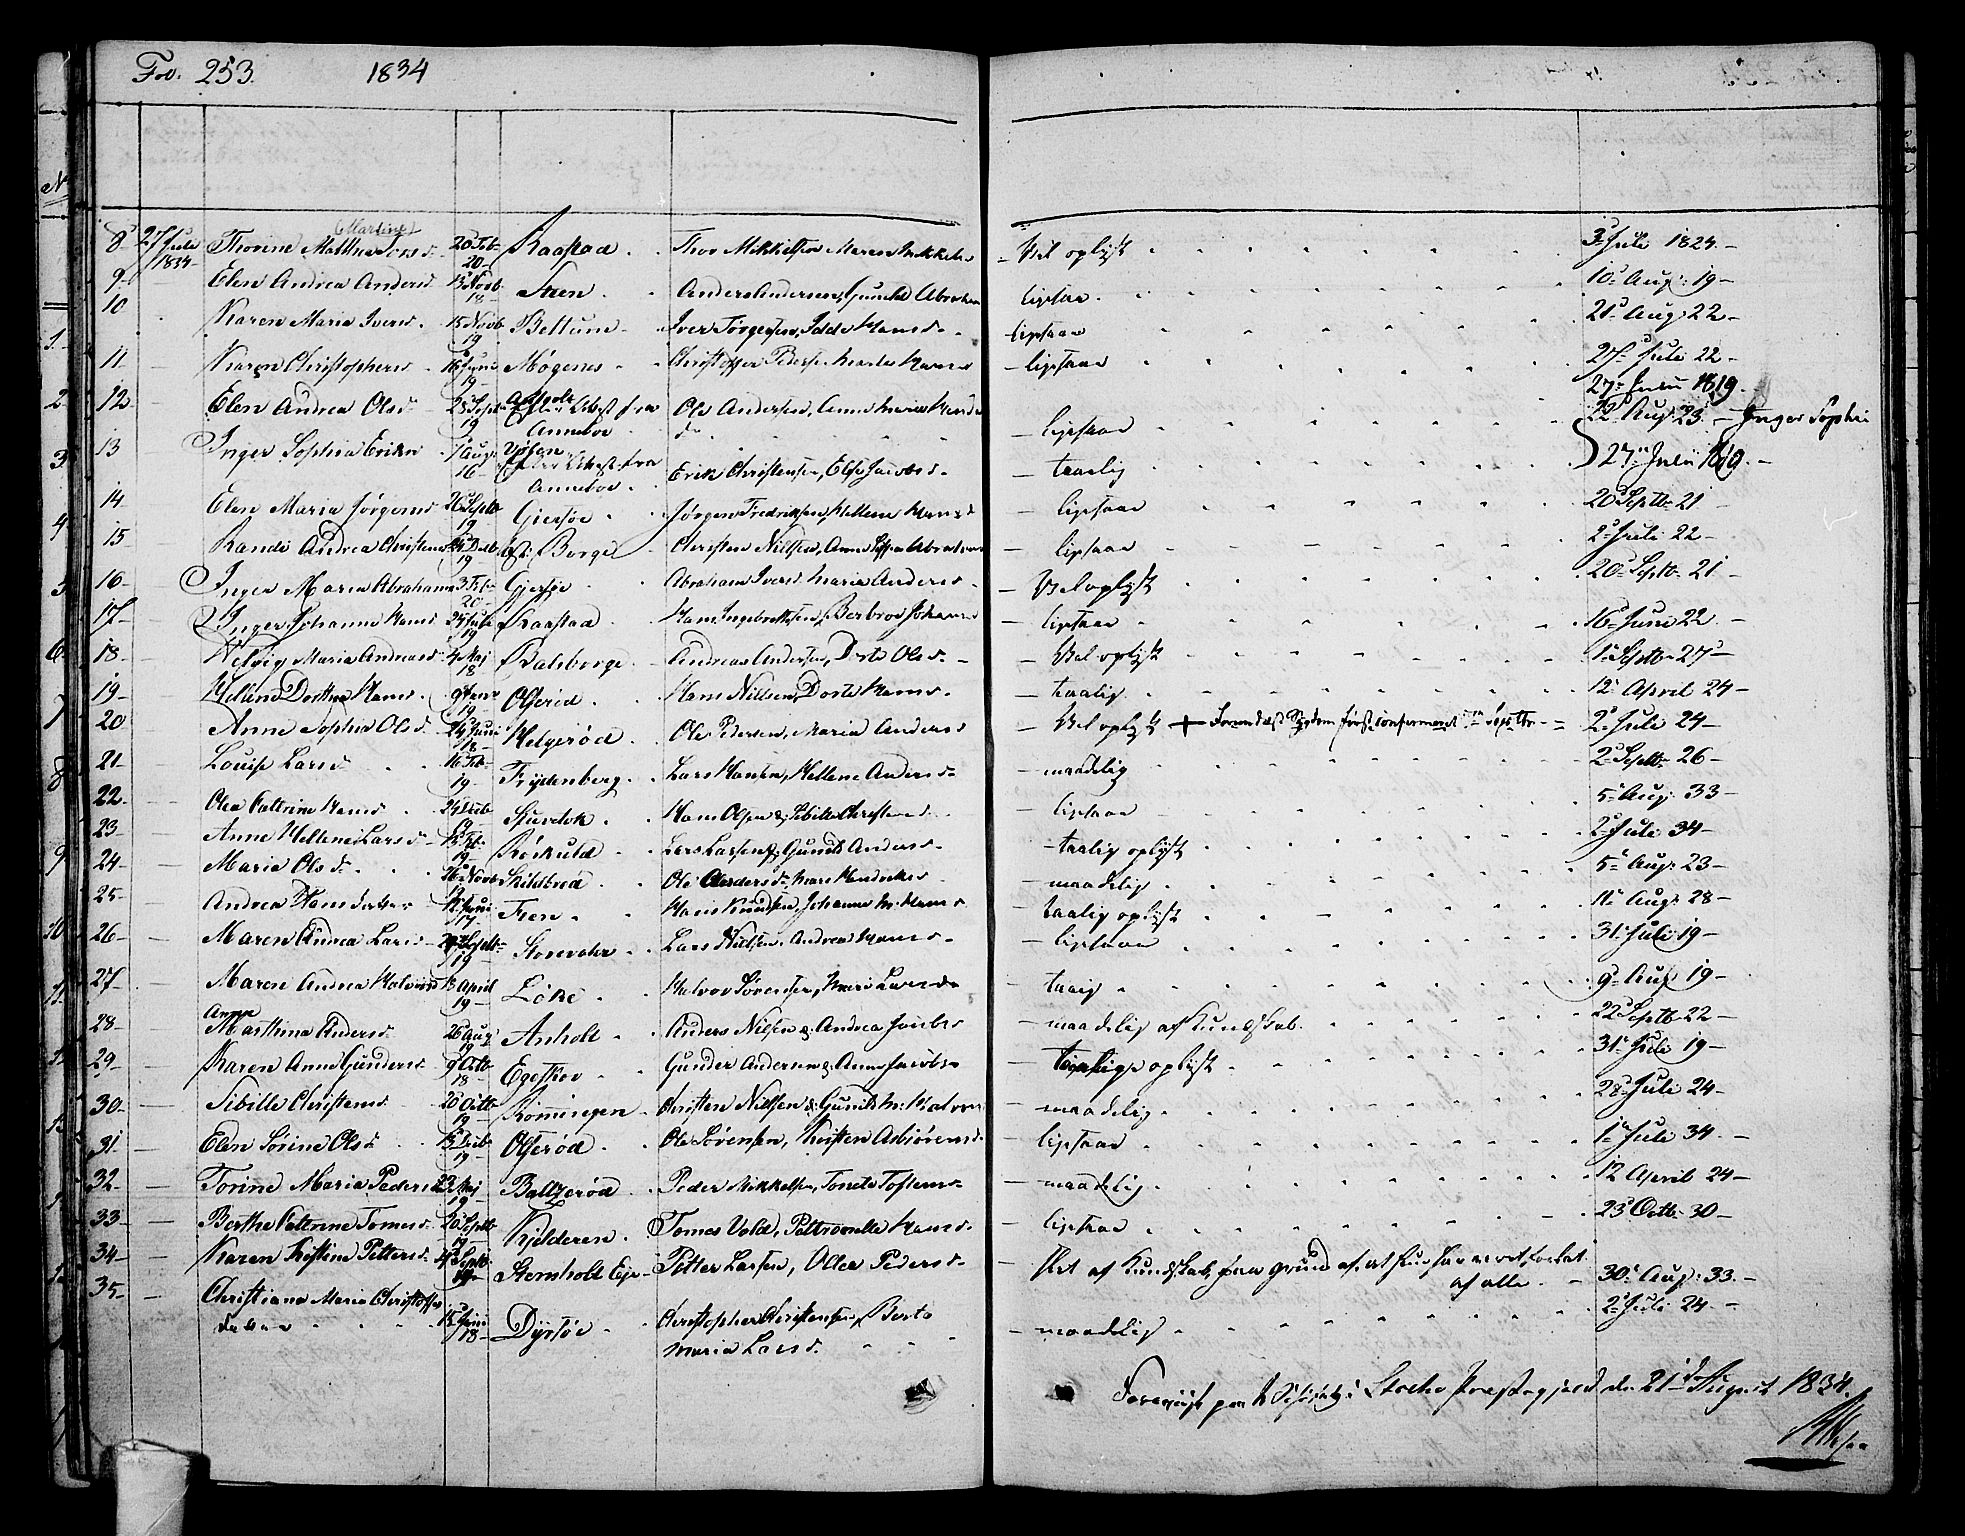 Fol. 253. 1834
8 27 Juli 1834 Thorine Mathea Torsd. (Martine) 20 Feb. 20 Raastad Thor Mikkelsen Maren Mikkelsd - Vel oplyst 3 Juli 1824.-
9- Elen Andrea Andersd 13 Novb 18 Steen. Anders Andersen, Gunild Abraham ligesaa. 10 Aug: 19-
10 Karen Maria Iversd. 15 Novb 19 Bettum Iver Jørgensen, Idde Hansd. ligesaa 21 Aug: 22-
11 Karen Christophersd 16 Juni 19 Møgenes Christoffer Peders. Marte Hansd - ligesaa 27 Juli 22-
27 Juli 1819.
12- Elen Andrea Olsd 19 Anneboe Ole Andersen, Anne Maria Hansd - ligesaa 22 Aug: 23. - Inger Sophie
13 Inger Sophia Eriksd 1 Aug 16 Anneboe Erik Christensen, Else Jacobsd. - taalig 27 Julii 1819.-
14 Elen Maria Jørgensd 26 Septb 19 Giersøe Jørgen Fredriksen, Hellene Hansd - ligesaa 20 Septb 21
15 Randi Andrea Christensd Decb 19 Borge Christen Nilssen, Anne Abrahams - ligesaa 2 Juli 22-
16- Inger Maren Abrahams 3 Feb 20- Gjersøe Abraham Iversd. Maria Andersd. - Vel oplyst 20 Septb. 21
17- Inger Johanne Hansd 24 Juli 19 Raastad Hans Ingebrethsen, Berbroe Johannesd - ligesaa 16 Juni 22.-
18- Helvig Maria Andreasd 4 Maj 18 Balsborge Andreas Andersen, Dorte Olsd.- - Vel oplyst 1 Septb 27
19- Helland Dorthea Hansd. 9 Janr 19- Olserød Hans Nilssen, Dorte Hansd. - taalig 12 April 24-
20 Anne Sophia Olsd. 24 Juni 18- Helgerød Ole Pedersen, Maria Andersd - Vel oplyst + 2 Juli 24-
21- Louise Larsd. 16 Feb 19- Frydenberg. Lars Hansen, Hellene Andersd. - maadelig 2 Septb 26-
22- Olea Cattrine Hansd 24 19- Hans Olsen & Sibille Christensd. - ligesaa 5 Aug: 33-
23- Anne Hellene Larsd Feb. 19- Røskuld Lars Larsen & Gunild Andersd. - taalig oplyst 2 Juli 34-
24- Maria Olsd. 26 Novb 19 Skildbred Ole Olsdersd. Mari Hendriksd - maadelig 5 Aug: 23-
25- Andrea Hansdatter 12 Juni 17 Steen. Hans Knudsen, Johanne M. Hansd. - taalig oplyst 11 Aug: 28-
26- Maren Andrea Larsd Septb 19- Storevahr Lars Nielsen, Andrea Hansd. - ligesaa 31 Juli 19-
27- Maren Andrea Halvorsd 13 April 19- Løke Halvor Sørensen, Mari Larsd - taalig 9 Aug 19-
28- Anne Marthina Andersd 26 Aug 19 Anholt Anders Nilsen & Andrea Jacobsd - maadelig af Kundskab. 22 Septb 22-
29- Karen Anne Gundersd 9 Octb 18- Egeskov Gunder Andersen & Anne Jacobsd - taalige oplyst 31 Juli 19-
30- Sibille Christensd 20 Octb 19- Rønningen Christen Nilssen & Gunild M. Halvors - maadelig 28 Juli 24-
31- Elen Sørine Olsd Decb 19 Olserød Ole Sørensen, Kirsten Asbjørnsd. - ligesaa 1 Juli 34.-
32- Torine Maria Pedersd Maj 19- Baltzerød Peder Mikkelsen, Tonete Toftensd. - maadelig 12 April 24-
33- Berthe Cattrine Tomesd. 20 Septb 19- Kjelderen Tomes Vold, Pettronelle Hansd. - ligesaa 23 Octb 30-
34- Karen Kristine Pettersd. Septb 19- Stensholt Eje Petter Larsen, Ollea Pedersd. - Slet af Kundskab, paa grund af, at hun har været forladt af alle 30 Aug: 33.-
35- Christiana Maria Christoffersdatter 15 Juni 18- Dyrsøe Christopher Christensen, Berte Maria Larsd. - maadelig 2 Juli 24.-
Foreviist paa i Stokke Præstegjeld den 21de August 1834.